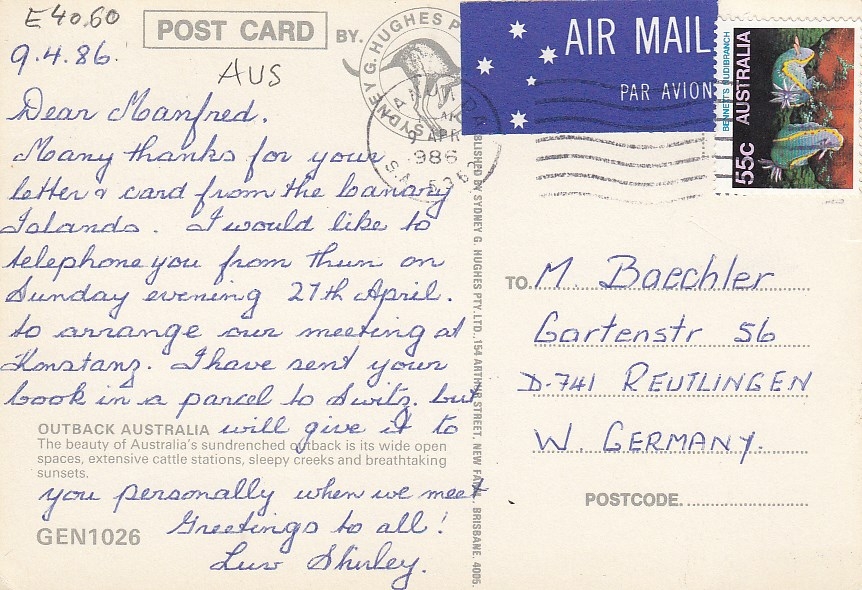 E 40.60
POST CARD BY.
SYDNEY G. HUGHES
9.4.86.
AUS
Dear Manfred.
Many thanks for your
letter & card from the Canary
Islands. I would like to
telephone you from Thun on
Sunday evening 27th April.
to arrange our meeting at
Konstanz. I have sent your
book in a parcel to Switz. but
will give it to
OUTBACK AUSTRALIA
The beauty of Australia's sundrenched outback is its wide open
spaces, extensive cattle stations, sleepy creeks and breathtaking
sunsets.
you personally when we meet
Greetings to all!
Luv Shirley.
GEN1026
PUBLISHED BY SYDNEY G. HUGHES PTY. LTD., 154 ARTHUR STREET, NEW FARM, BRISBANE. 4005.
AIR MAIL
PAR AVION
9 APR
1986
S.A. 5363
BENNETT'S NUDIBRANCH
AUSTRALIA
55c
TO. M. Baechler
Gartenstr 56
D-741 REUTLINGEN
W. GERMANY.
POSTCODE